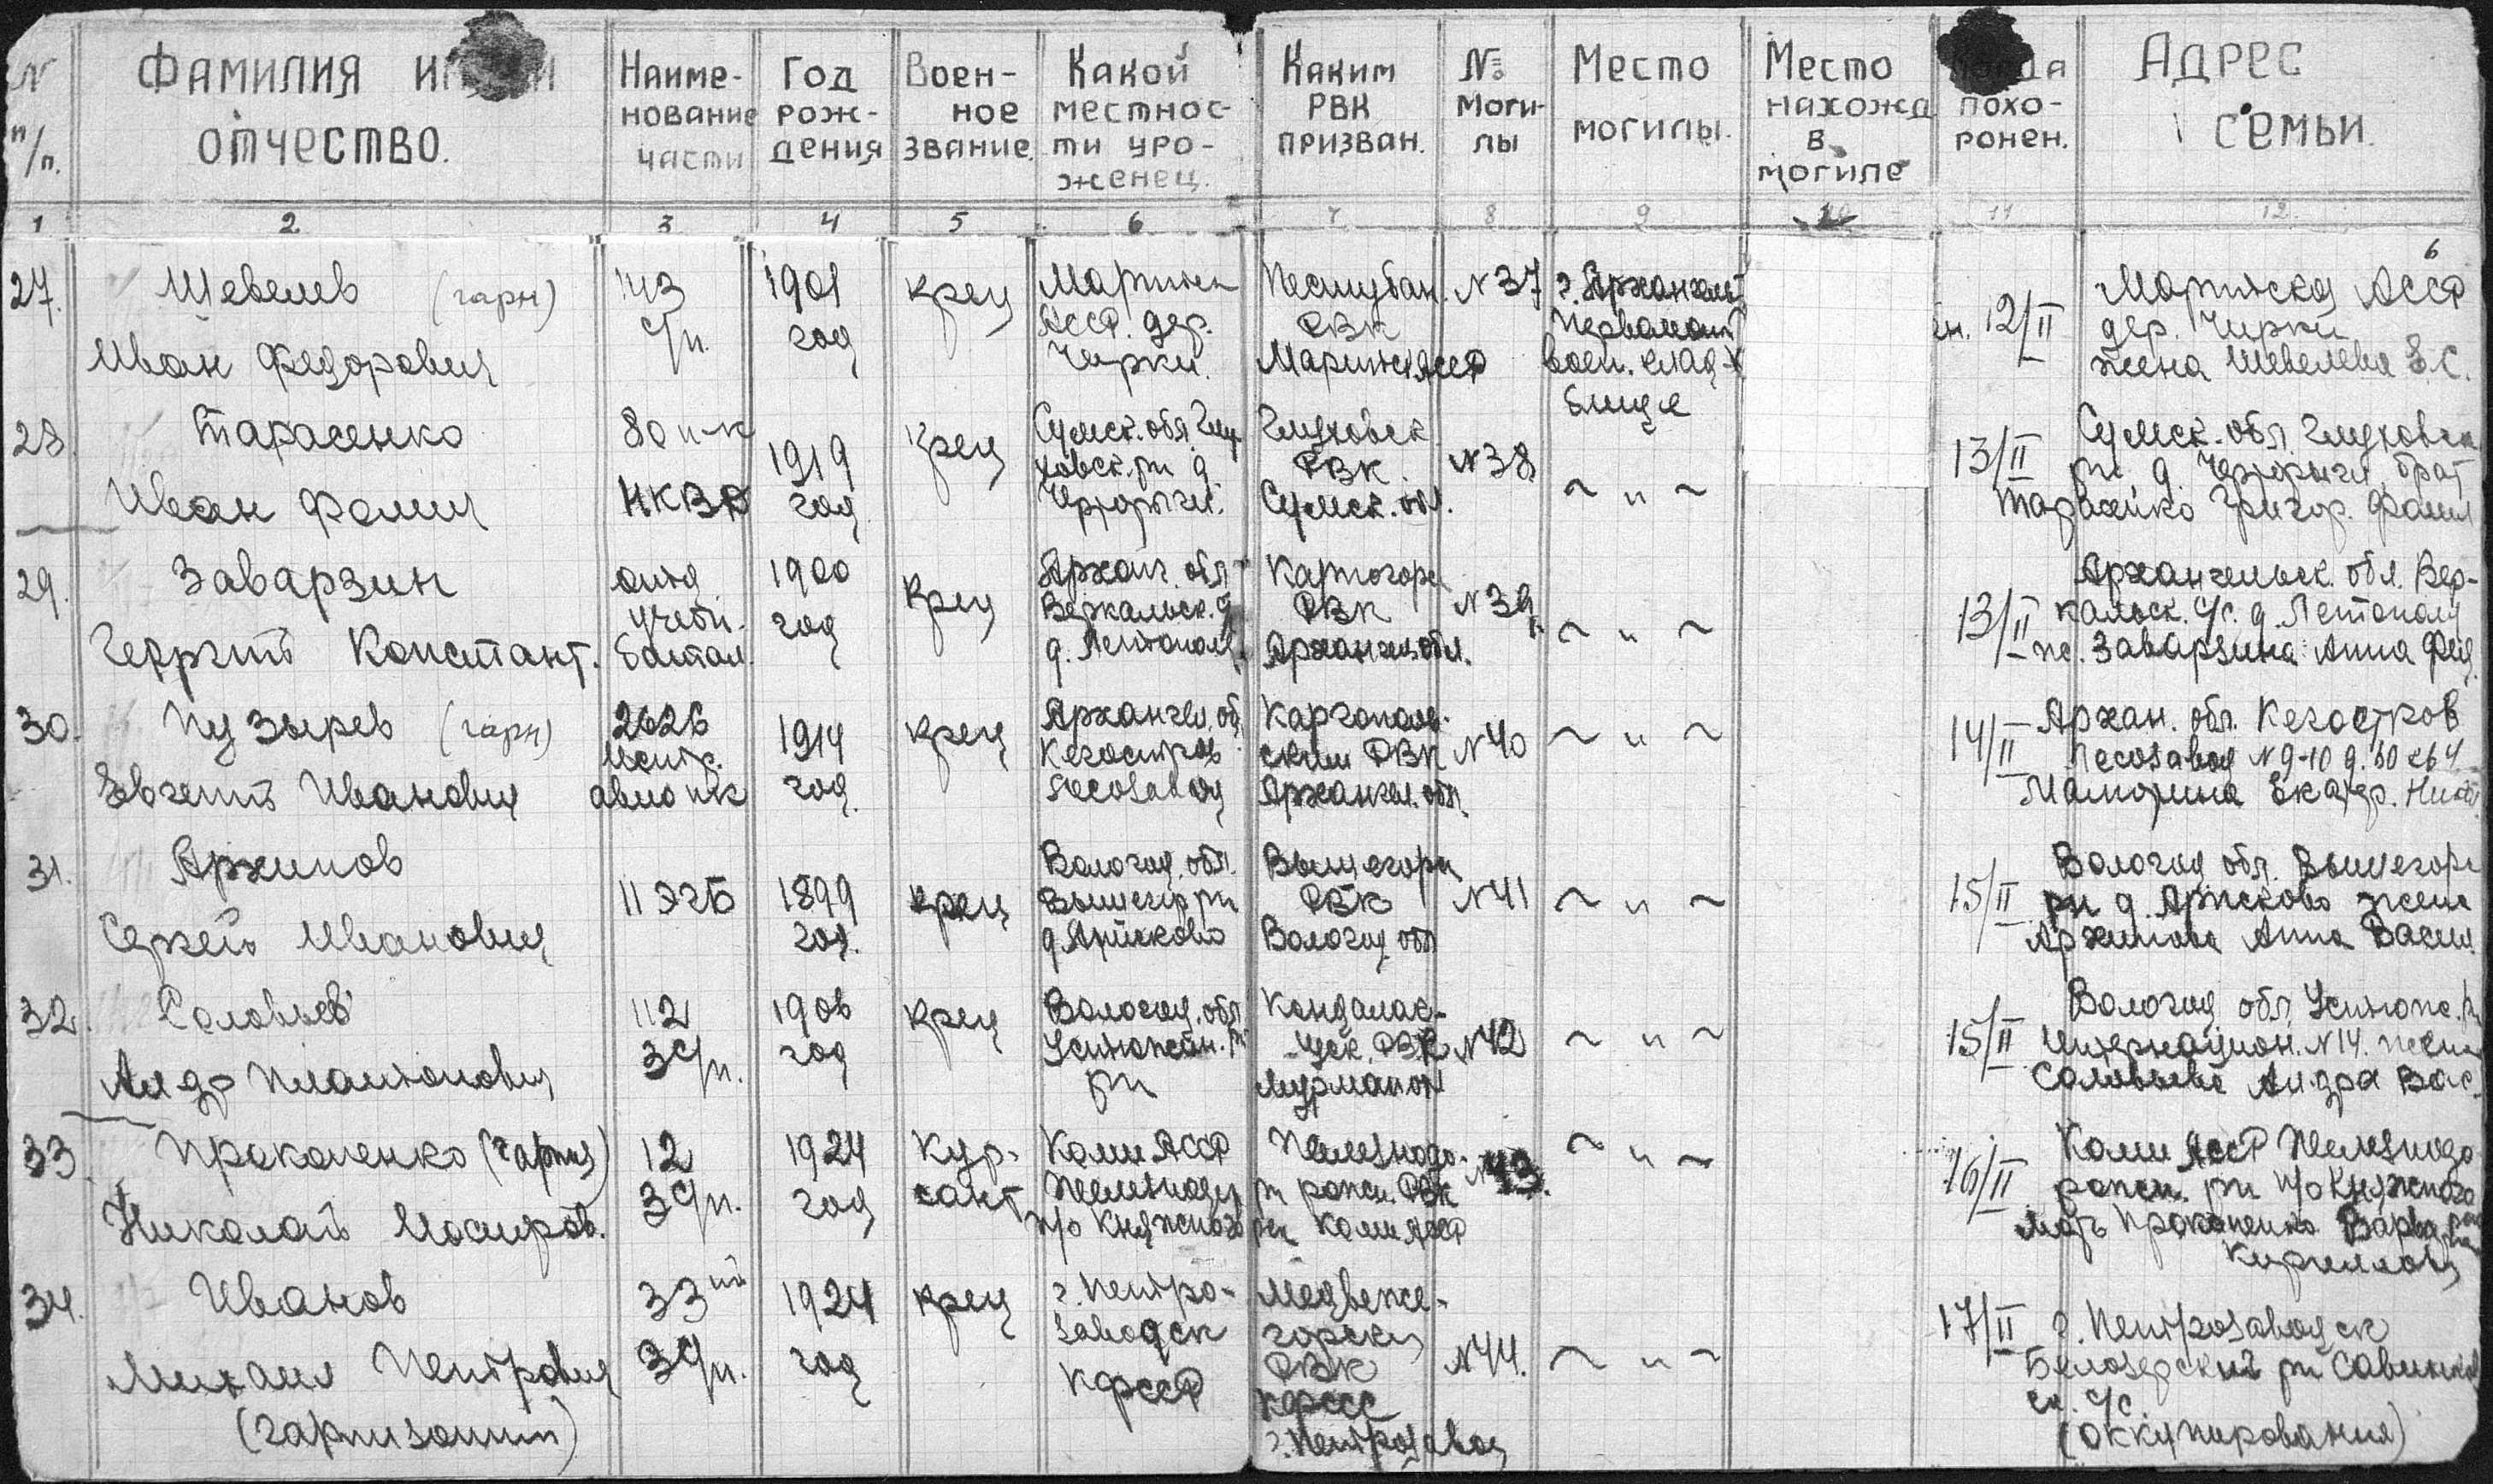 N п/п.
Фамилия и
отчество.
Наиме-
нование
части
Год
рож-
дения
Воен-
ное
звание.
Какой
местнос-
ти уро-
женец.
Каким
РВК
призван.
№
моги-
лы
Место
могилы.
Место
нахожд
в
могиле
похо-
ронен.
Адрес
семьи.
1 2 3 4 5 6 7 8 9 10 11 12.
6
27.
Шевелев (гарн)
Иван Федорович
143
с/п.
1901
год
Крец
Марийск
АССР. дер.
Чирки.
РВК
Марийск АССР
N 37
г. Архангельск
воен. клад-
бище
12/II
Марийская АССР
дер. Чирки
жена Шевелева Е.С.
28.
Тарасенко
Иван Фомич
80 п-к
НКВД
1919
год
Крец
Сумск. обл. Глу-
ховск. рн д.
Глуховск.
РВК.
Сумск. обл.
N 38
~ " ~
13/II
Сумск. обл. Глуховск
рн. д. брат
Тарасенко Григор. Фомич
29.
Заварзин
Георгий Констант.
учебн.
батал.
1900
год
Крец
Арханг. обл
Веркольск.
д. Летопола
Карпогорск
РВК
Архангел. обл.
N 39
~ " ~
13/II
Архангельск. обл. Вер-
кольск. с/с. д. Летопола
ж. Заварзина Анна Фед.
30.
Пузырев (гарн)
Евгений Иванович
2626
авиа пк
1914
год.
Крец
Архангел. об.
Кегостров
Лесозавод
Каргополь-
ским РВК
Архангел. обл.
N 40
~ " ~
14/II
Архан. обл. Кегостров
Лесозавод N 9-10 д. 60 кв 4
Екатер.
31.
Архипов
Сергей Иванович
11 ЭГБ
1899
год.
Крец
Вологод. обл.
Вытегор рн
Вытегорск
РВК
Вологод. обл
N 41
~ " ~
15/II
Вологод обл. Вытегорс
рн д. жена
Архипова Анна Васил
32.
Соловьев
Ал-др Платонович
112
з с/п.
1906
год
Крец
Вологод. обл
Устюжен.
рн
Кандалак-
шск. РВК
Мурман обл
N 42
~ " ~
15/II
Вологод обл Устюже. рн
Интернацион. N 14. жена
Соловьева Ал-дра Вас
33.
Прокопенко (гарниз)
Николай
12
з с/п.
1924
год
Кур-
сант
Коми АССР
Железнодор
п/о Княжпого
Железнодо-
рожн. РВК
Коми АССР
N 43.
~ " ~
16/II
Коми АССР Железнодо
рожн. рн п/о Княжпого
Мать Прокопенко Варвара
Кирилловн
34.
Иванов
Михаил Петрович
(гарнизонный)
33ий
з с/п.
1924
год
Крец
г. Петро-
заводск
КФССР
Медвеже-
горский
РВК
КФССР
г. Петрозавод
N 44.
~ " ~
17/II
г. Петрозаводск
Белозерский рн
с/с.
(оккупирования)